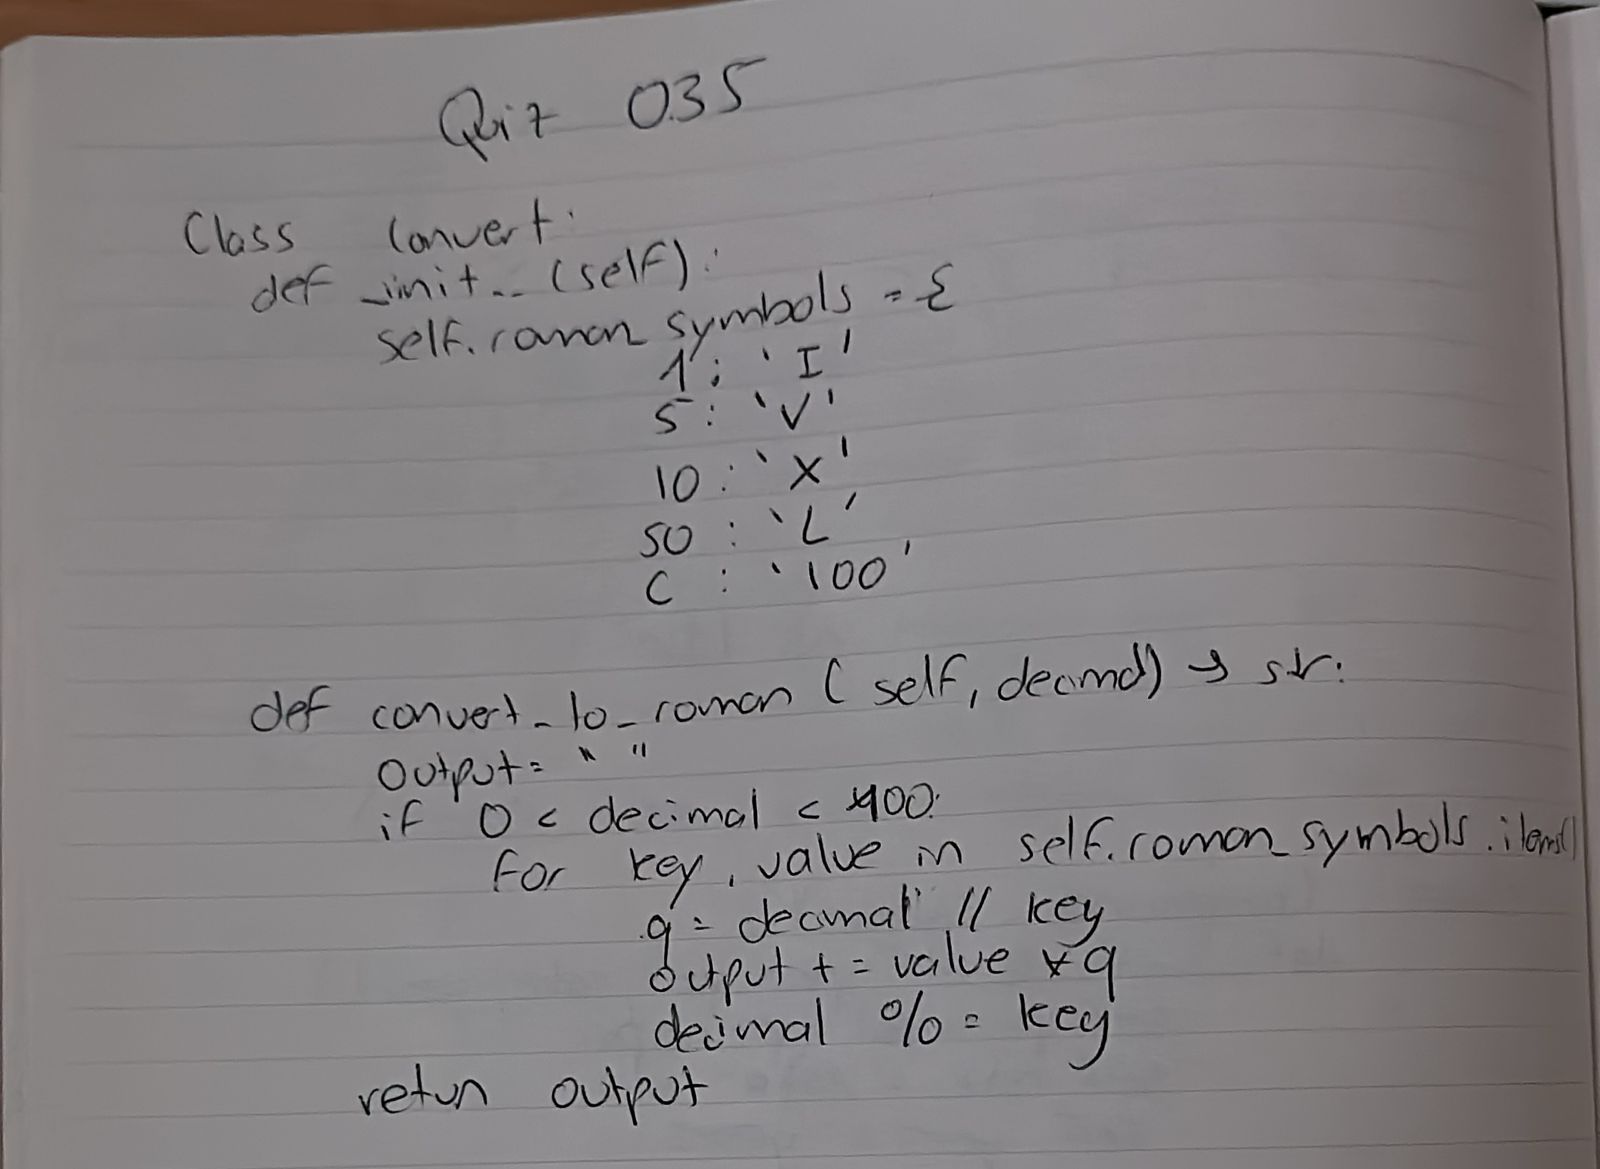 Quiz 035
Class Convert:
def _init__(self):
self.roman_symbols = {
1: 'I'
5: 'V'
10: 'X'
50: 'L'
C: '100'
def convert_to_roman (self, decimal) -> str:
output = " "
if 0 < decimal < 400:
for key, value in self.roman_symbols.items()
q = decimal // key
output += value * q
decimal %= key
retun output